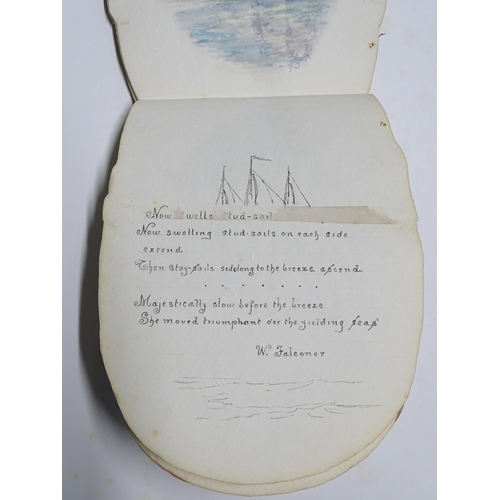 Now swells stud-sail
Now swelling stud-sails on each side
extend
Then stay-sails sidelong to the breeze ascend
. . . . . . .
Majestically slow before the breeze
She moved triumphant o'er the yielding seas
W. Falconer